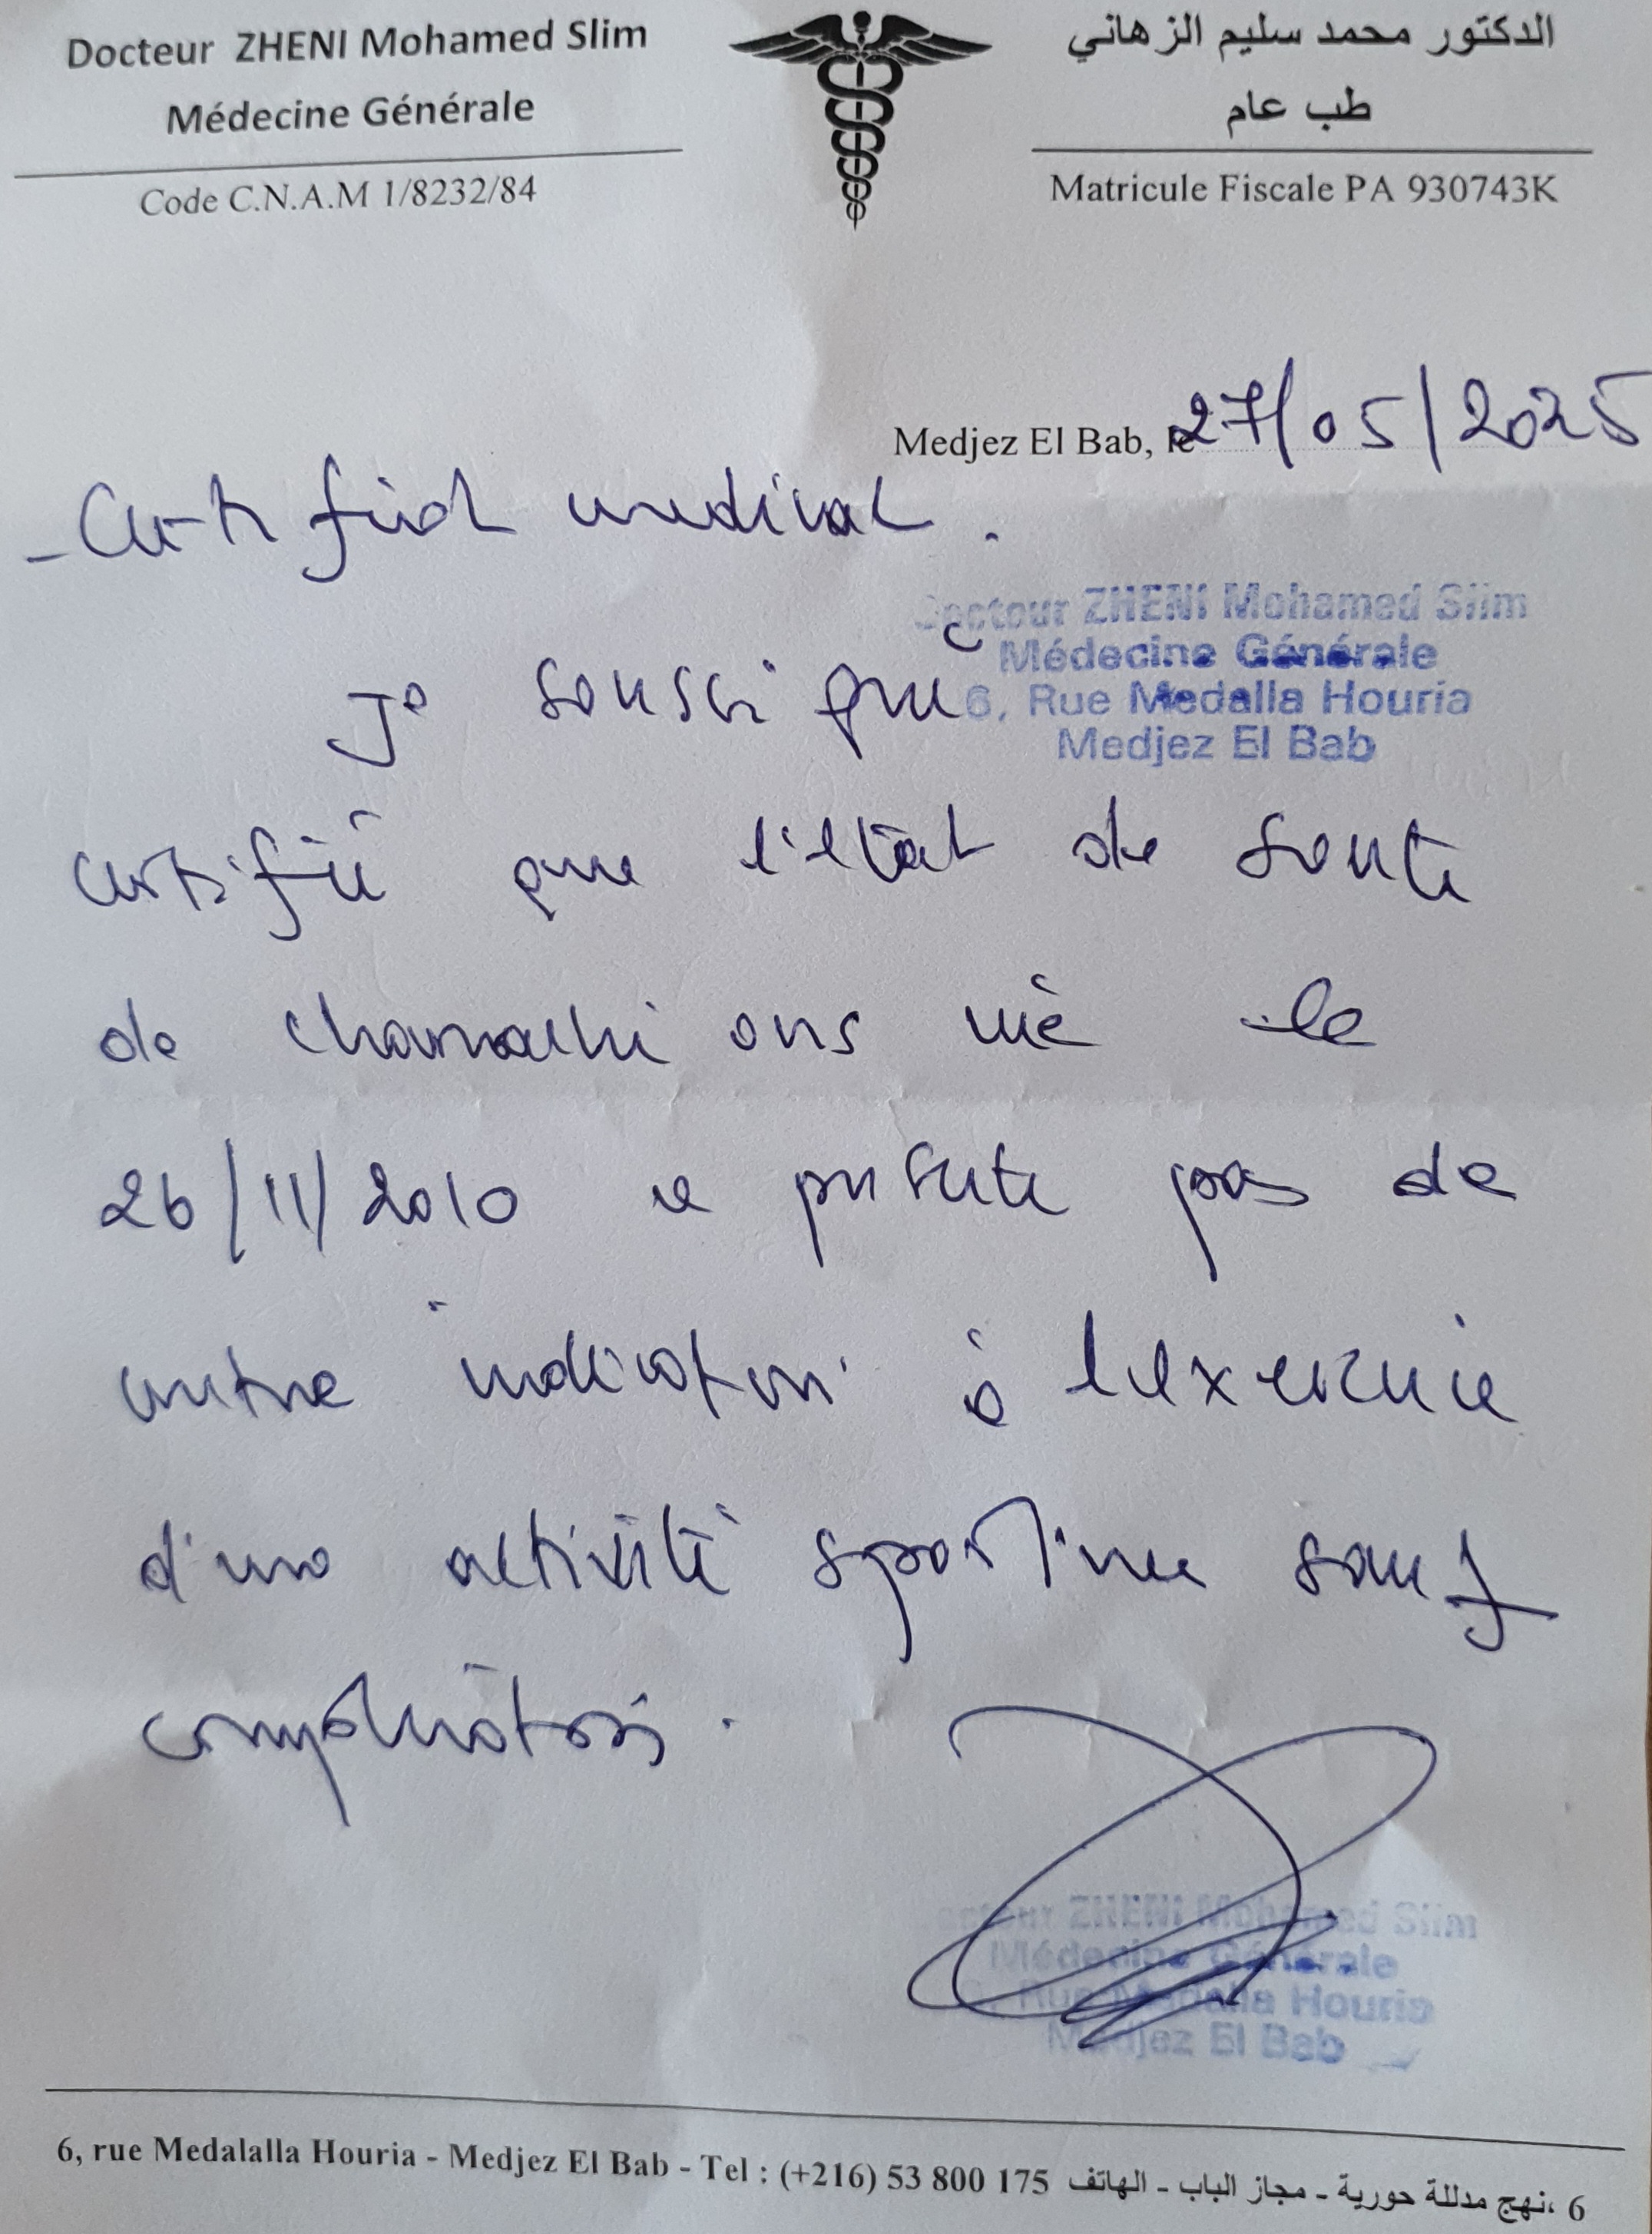 Docteur ZHENI Mohamed Slim
Médecine Générale
Code C.N.A.M 1/8232/84
الدكتور محمد سليم الزهاني
طب عام
Matricule Fiscale PA 930743K
Medjez El Bab, le 27/05/2025
- Certificat medical .
Docteur ZHENI Mohamed Slim
Médecine Générale
6, Rue Medalla Houria
Medjez El Bab
Je soussigné
certifie que l'état de santé
de ons né le
26/11/2010 ne présente pas de
contre indication à l'exercice
d'une activité sportive sauf
complication .
Docteur ZHENI Mohamed Slim
Médecine Générale
6, Rue Medalla Houria
Medjez El Bab
6, rue Medalalla Houria - Medjez El Bab - Tel : (+216) 53 800 175 6 ،نهج مدللة حورية - مجاز الباب - الهاتف